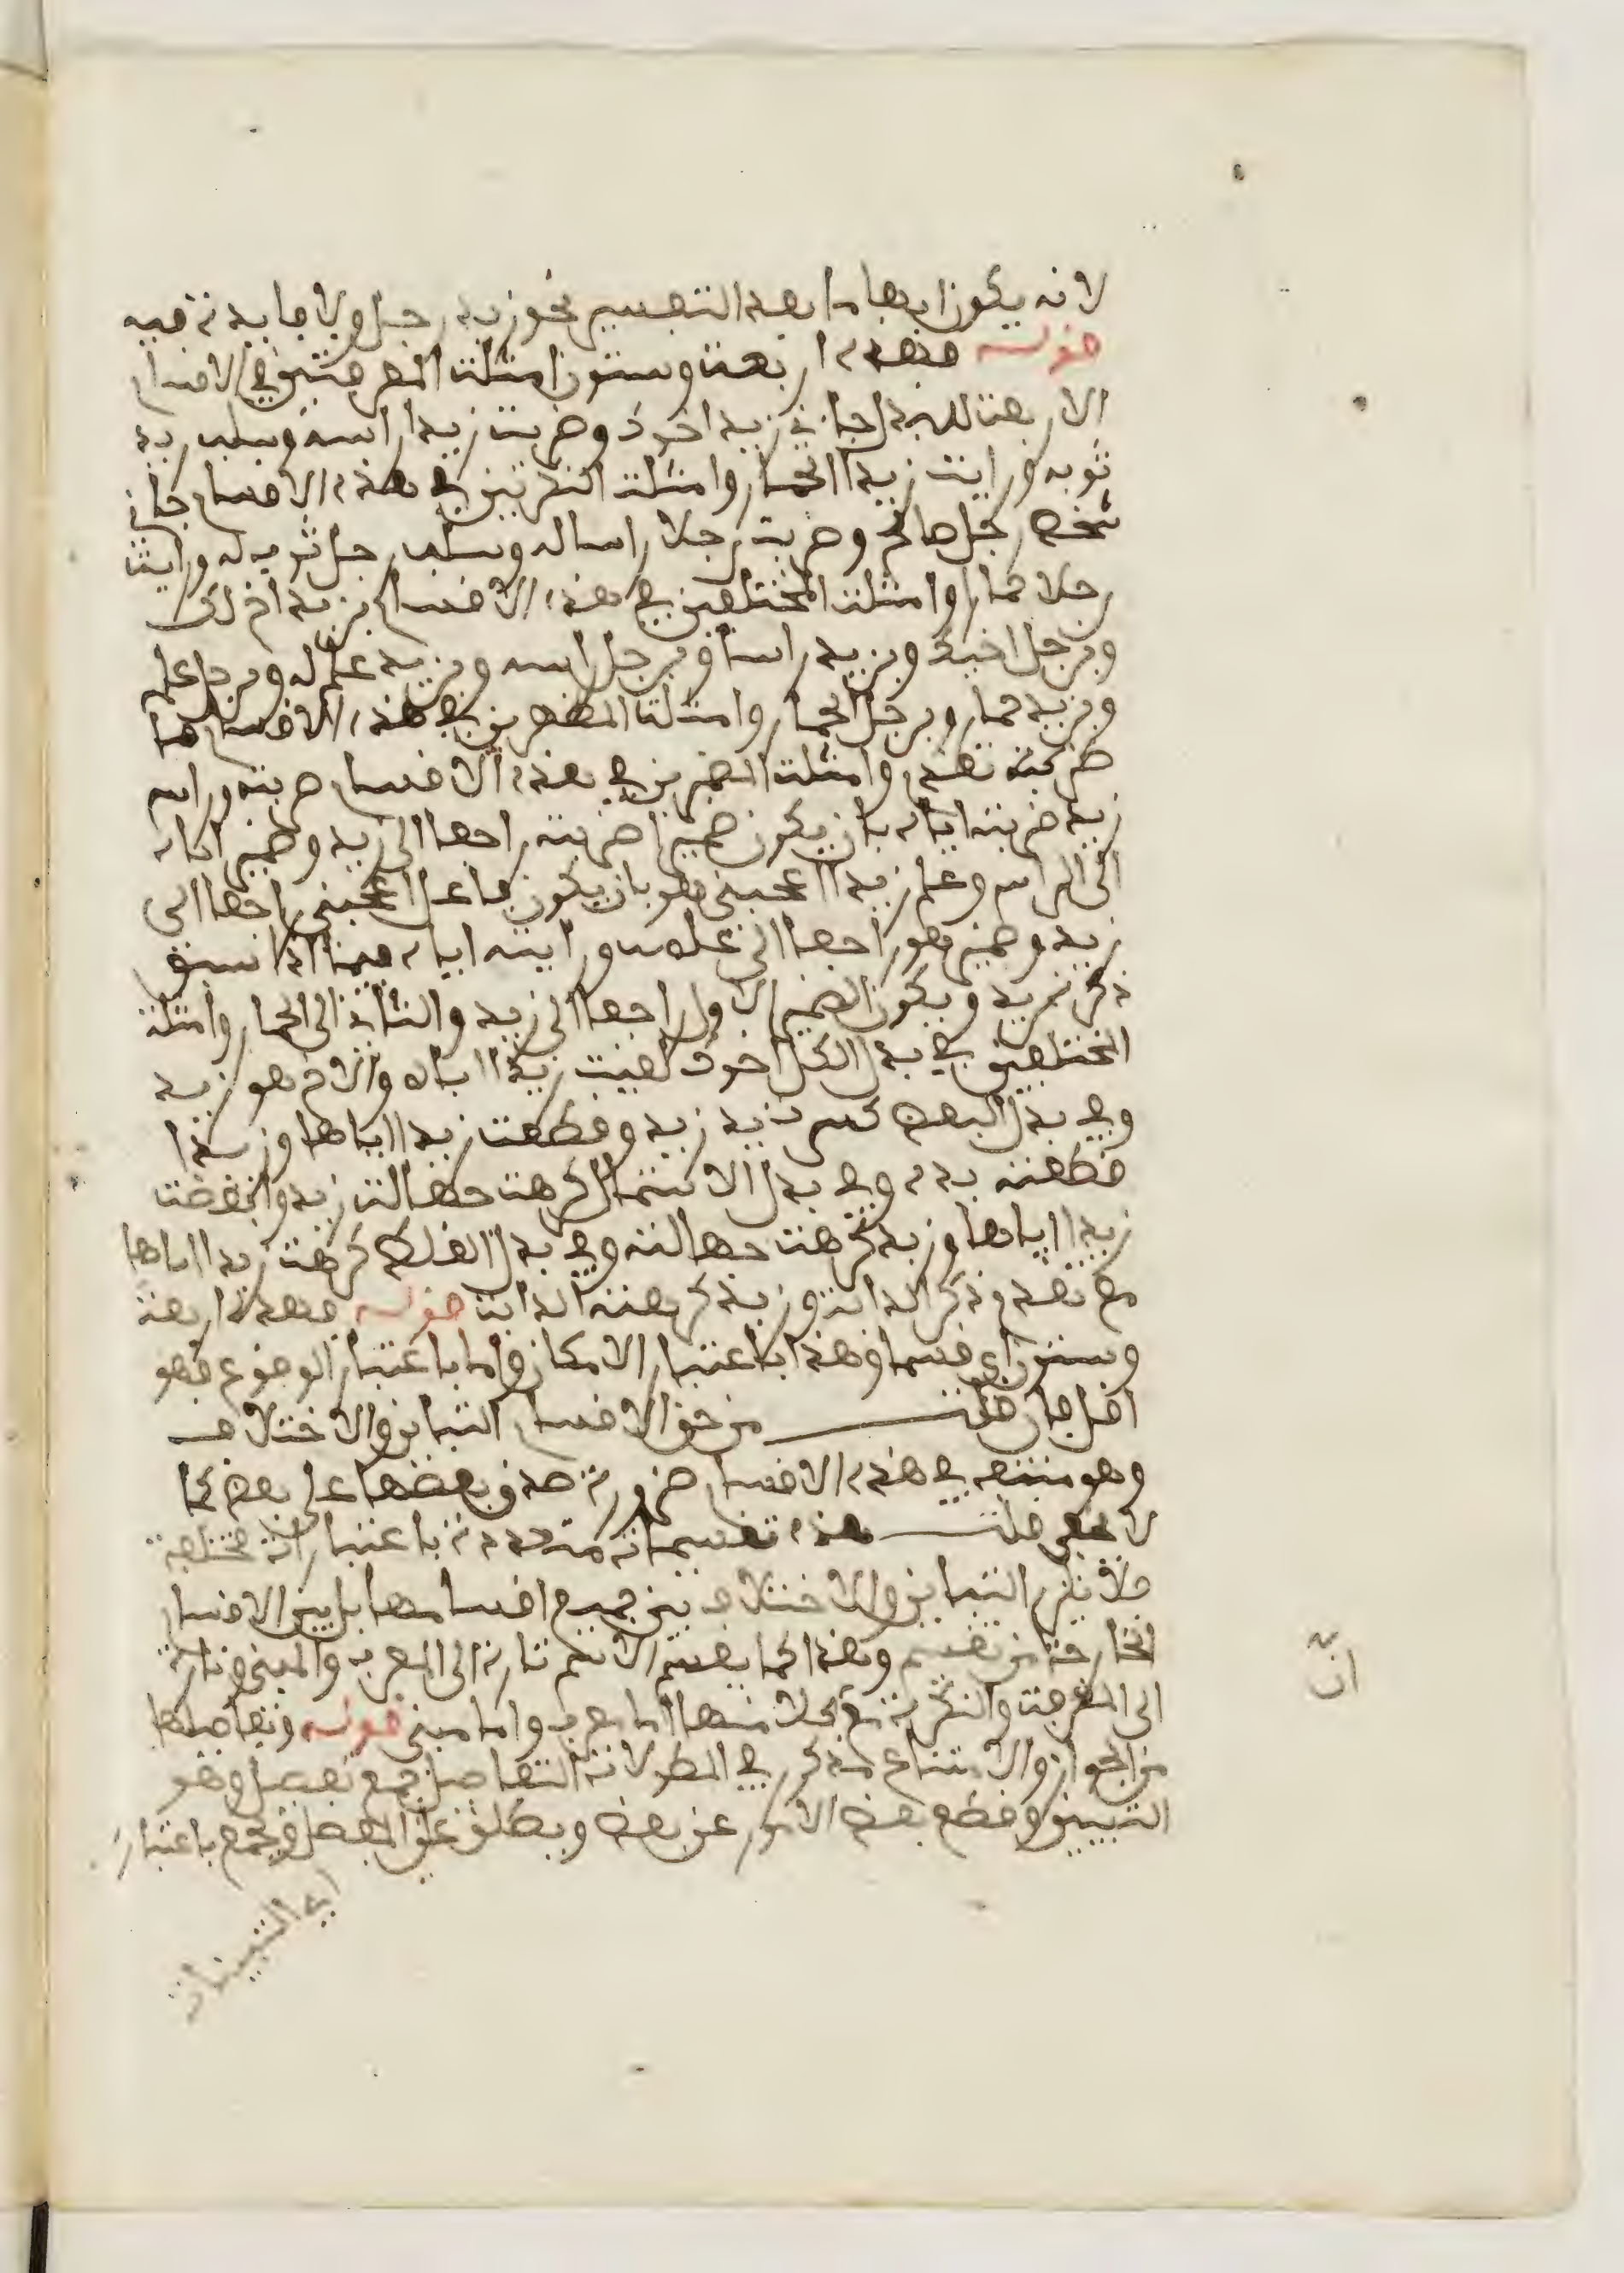 لانه يكون ابهاما بعد التفسير نحو زيد رجل ولا فايدة فيه
قوله فهذه اربعة وستون امثلة المعرفتين في الاقسام
الاربعة للبدل جاني زيد اخوك وضربت زيدا راسه وسلب زيد
ثوبه ورايت زيدا الحمار وامثلة النكرتين في هذه الاقسام جاني
شخص رجل صالح وضربت رجلا راسا له وسلب رجل ثوب له ورايت
رجلا حمارا وامثلة المختلفين في هذه الاقسام بزيد اخ لك
وبرجل اخيك وبزيد راس وبرجل راسه وبزيد علم له وبرجل علمه
وبزيد حمار وبرجل الحمار وامثلة المظهرين في هذه الاقسام ما
ذكرته بعد وامثلة المضمرين في هذه الاقسام ضربته وراس
زيد ضربته اياه بان يكون ضمير ضربته راجعا الى زيد وضمير اياه
الى الراس وعلم زيد اعجبني هو بان يكون فاعل اعجبني راجعا الى
زيد وضمير هو راجعا الى علمه ورايته اياه فيما اذا سبق
ذكر زيد ويكون الضمير الاول راجعا الى زيد والثاني الى الحمار وامثلة
المختلفين في بدل الكل اخوك لقيت زيدا اياه والاخ هو زيد
وفي بدل البعض كسرت يد زيد وقطعت زيدا اياها وزيدا
قطعته يده وفي بدل الاشتمال كرهت جهالة زيد وابغضت
زيدا اياها وزيد كرهت جهالته وفي بدل الغلط كرهت زيدا اياها
مع بعد ذكر الدابة وزيد كرهته الدابة قوله فهذه اربعة
وستون اي قسما وهذا باعتبار الامكان واما باعتبار الوقوع فهو
اقل فان قلت من حق الاقسام التباين والاختلاف
وهو منتف في هذه الاقسام ضرورة صدق بعضها على بعض كما
لا يخفى قلت هذه تقسيمات متعددة باعتبارات مختلفة
فلا يلزم التباين والاختلاف بين جميع اقسامها بل بين الاقسام
الخارجة من تقسيم وهذا كما يقسم الاسم تارة الى المعرب والمبني وتارة
الى المعرفة والنكرة مع ان كلا منهما اما معرب واما مبني قوله وتفاصيلها
من الجواز والامتناع مذكور في المطولات التفاصيل جمع تفصيل وهو
التبيين وقطع بعض الامور عن بعض ويطلق على المفصل وجمع باعتبار
اي التبيينات
ان